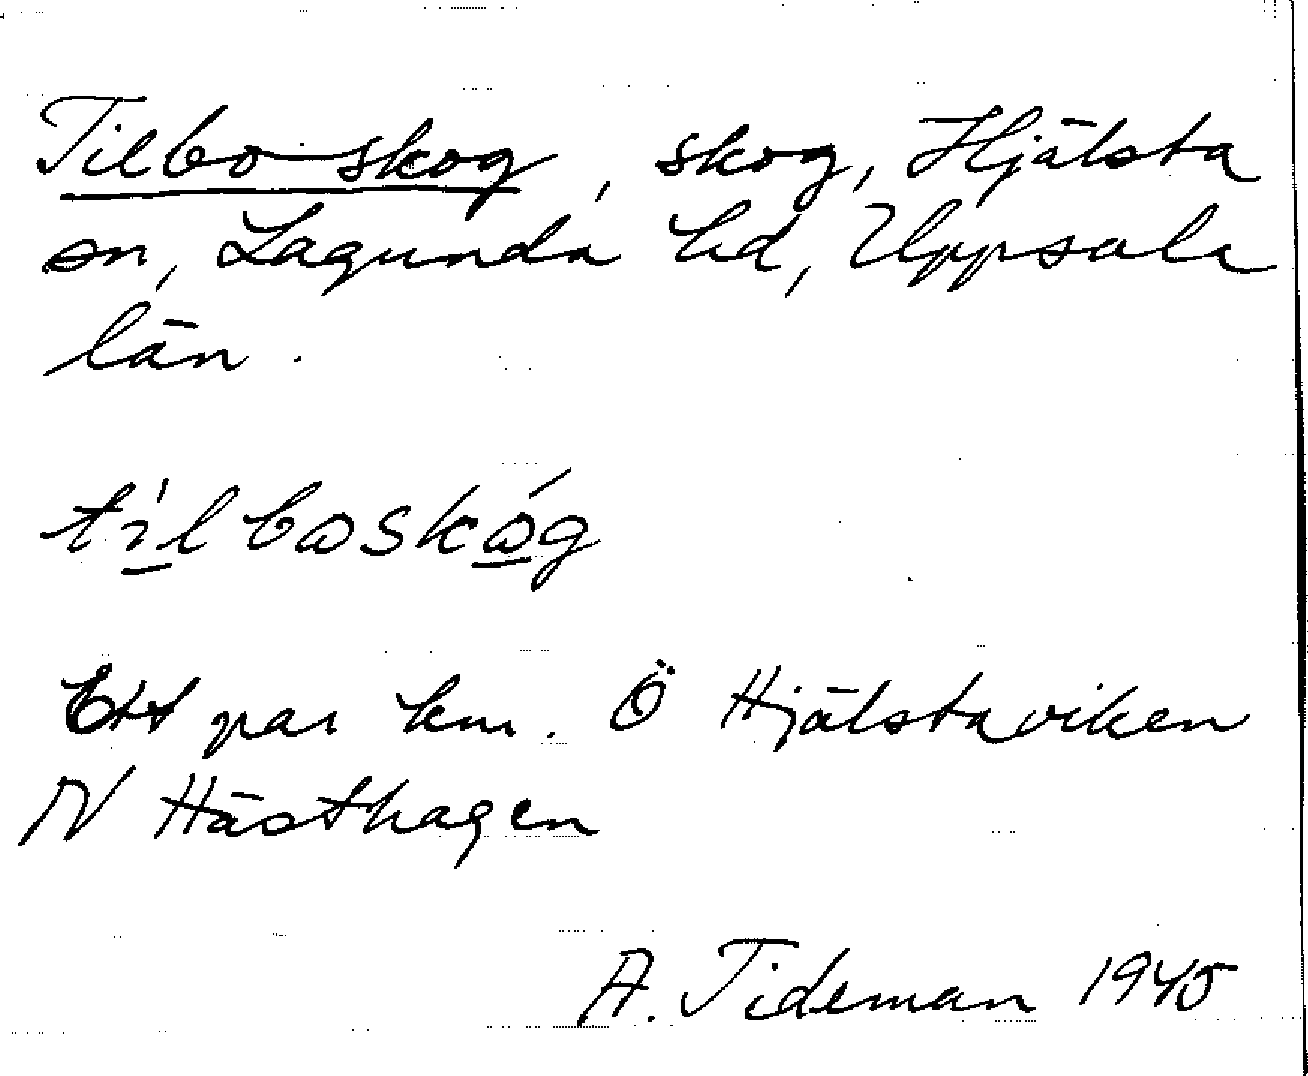 Tilbo skog, skog, Hjälsta
sn, Lagunda hd, Uppsala
län.
tílbωskώg
Ett par km. Ö Hjälstaviken
N Hästhagen
A. Tideman 1945